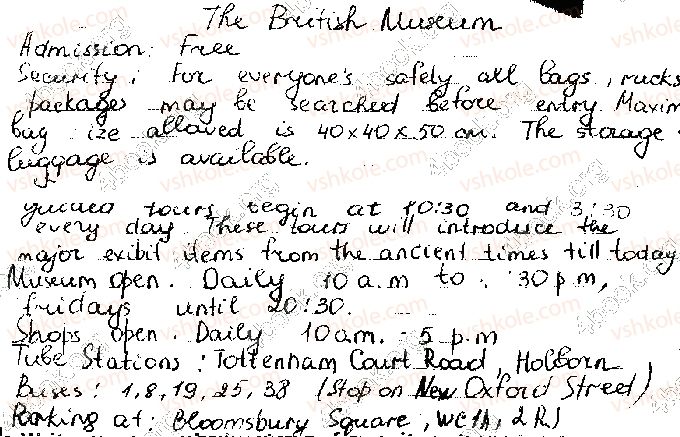 The British Museum
Admission: Free
Security: For everyone's safely all bags, rucks
packages may be searched before entry. Maxim
bag ize allowed is 40x40x50 cm. The storage
luggage is available.
tours begin at 10:30 and 3:30
every day. These tours will introduce the
major exibit items from the ancient times till today
Museum open. Daily 10 a.m to :30 p m,
fridays until 20:30.
Shops open. Daily 10 a.m. - 5 p.m
Tube Stations: Tottenham Court Road, Holborn
Buses: 1, 8, 19, 25, 38 (Stop on New Oxford Street)
Parking at: Bloomsbury Square, WC1A, 2RJ